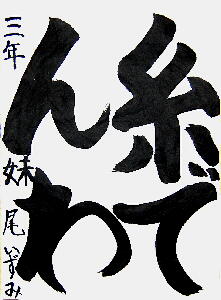 糸で
んわ
三年 妹尾いずみ